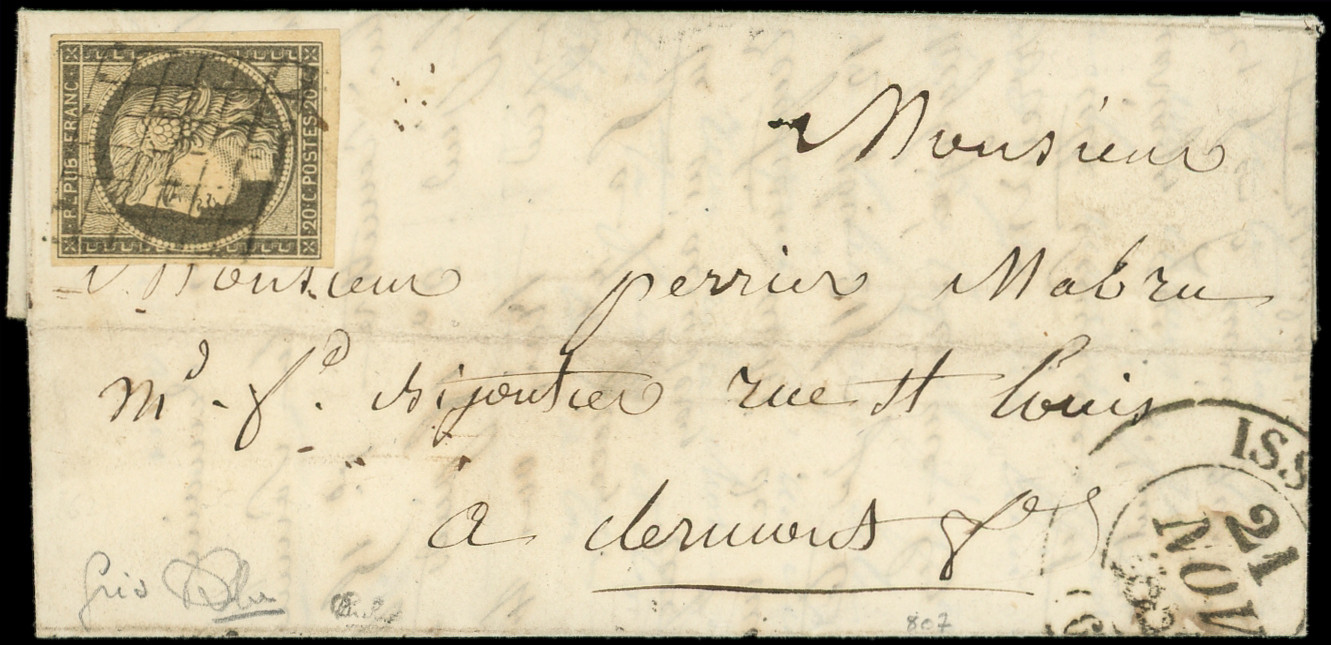 REPUB. FRANC.
20 C. POSTES 20 C.
Monsieur
Monsieur perrier Mabru
md. fd. Bijoutier rue St Louis
a clermont fd
ISS
21
NOV
807